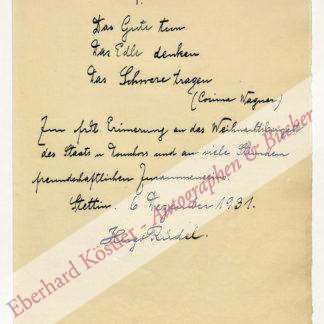 Das Gute tun
Das Edle denken
Das Schwere tragen
(Cosima Wagner)
Zur frdl. Erinnerung an das Weihnachtskonzert
des Staats u Domchors und an viele Stunden
freundschaftlichen Zusammenseins.
Stettin. 6 Dezember 1931.
Hugo Rüdel.
Eberhard Köstler - Autographen & Bücher